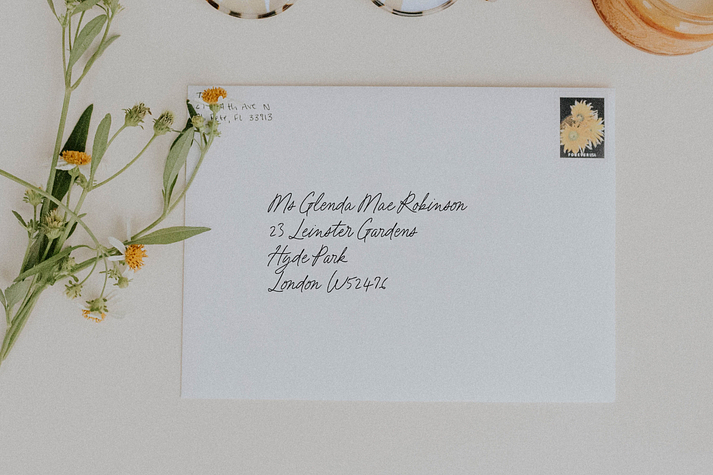 Ave N
FL 33713
FOREVER USA
Ms Glenda Mae Robinson
23 Leinster Gardens
Hyde Park
London W52476